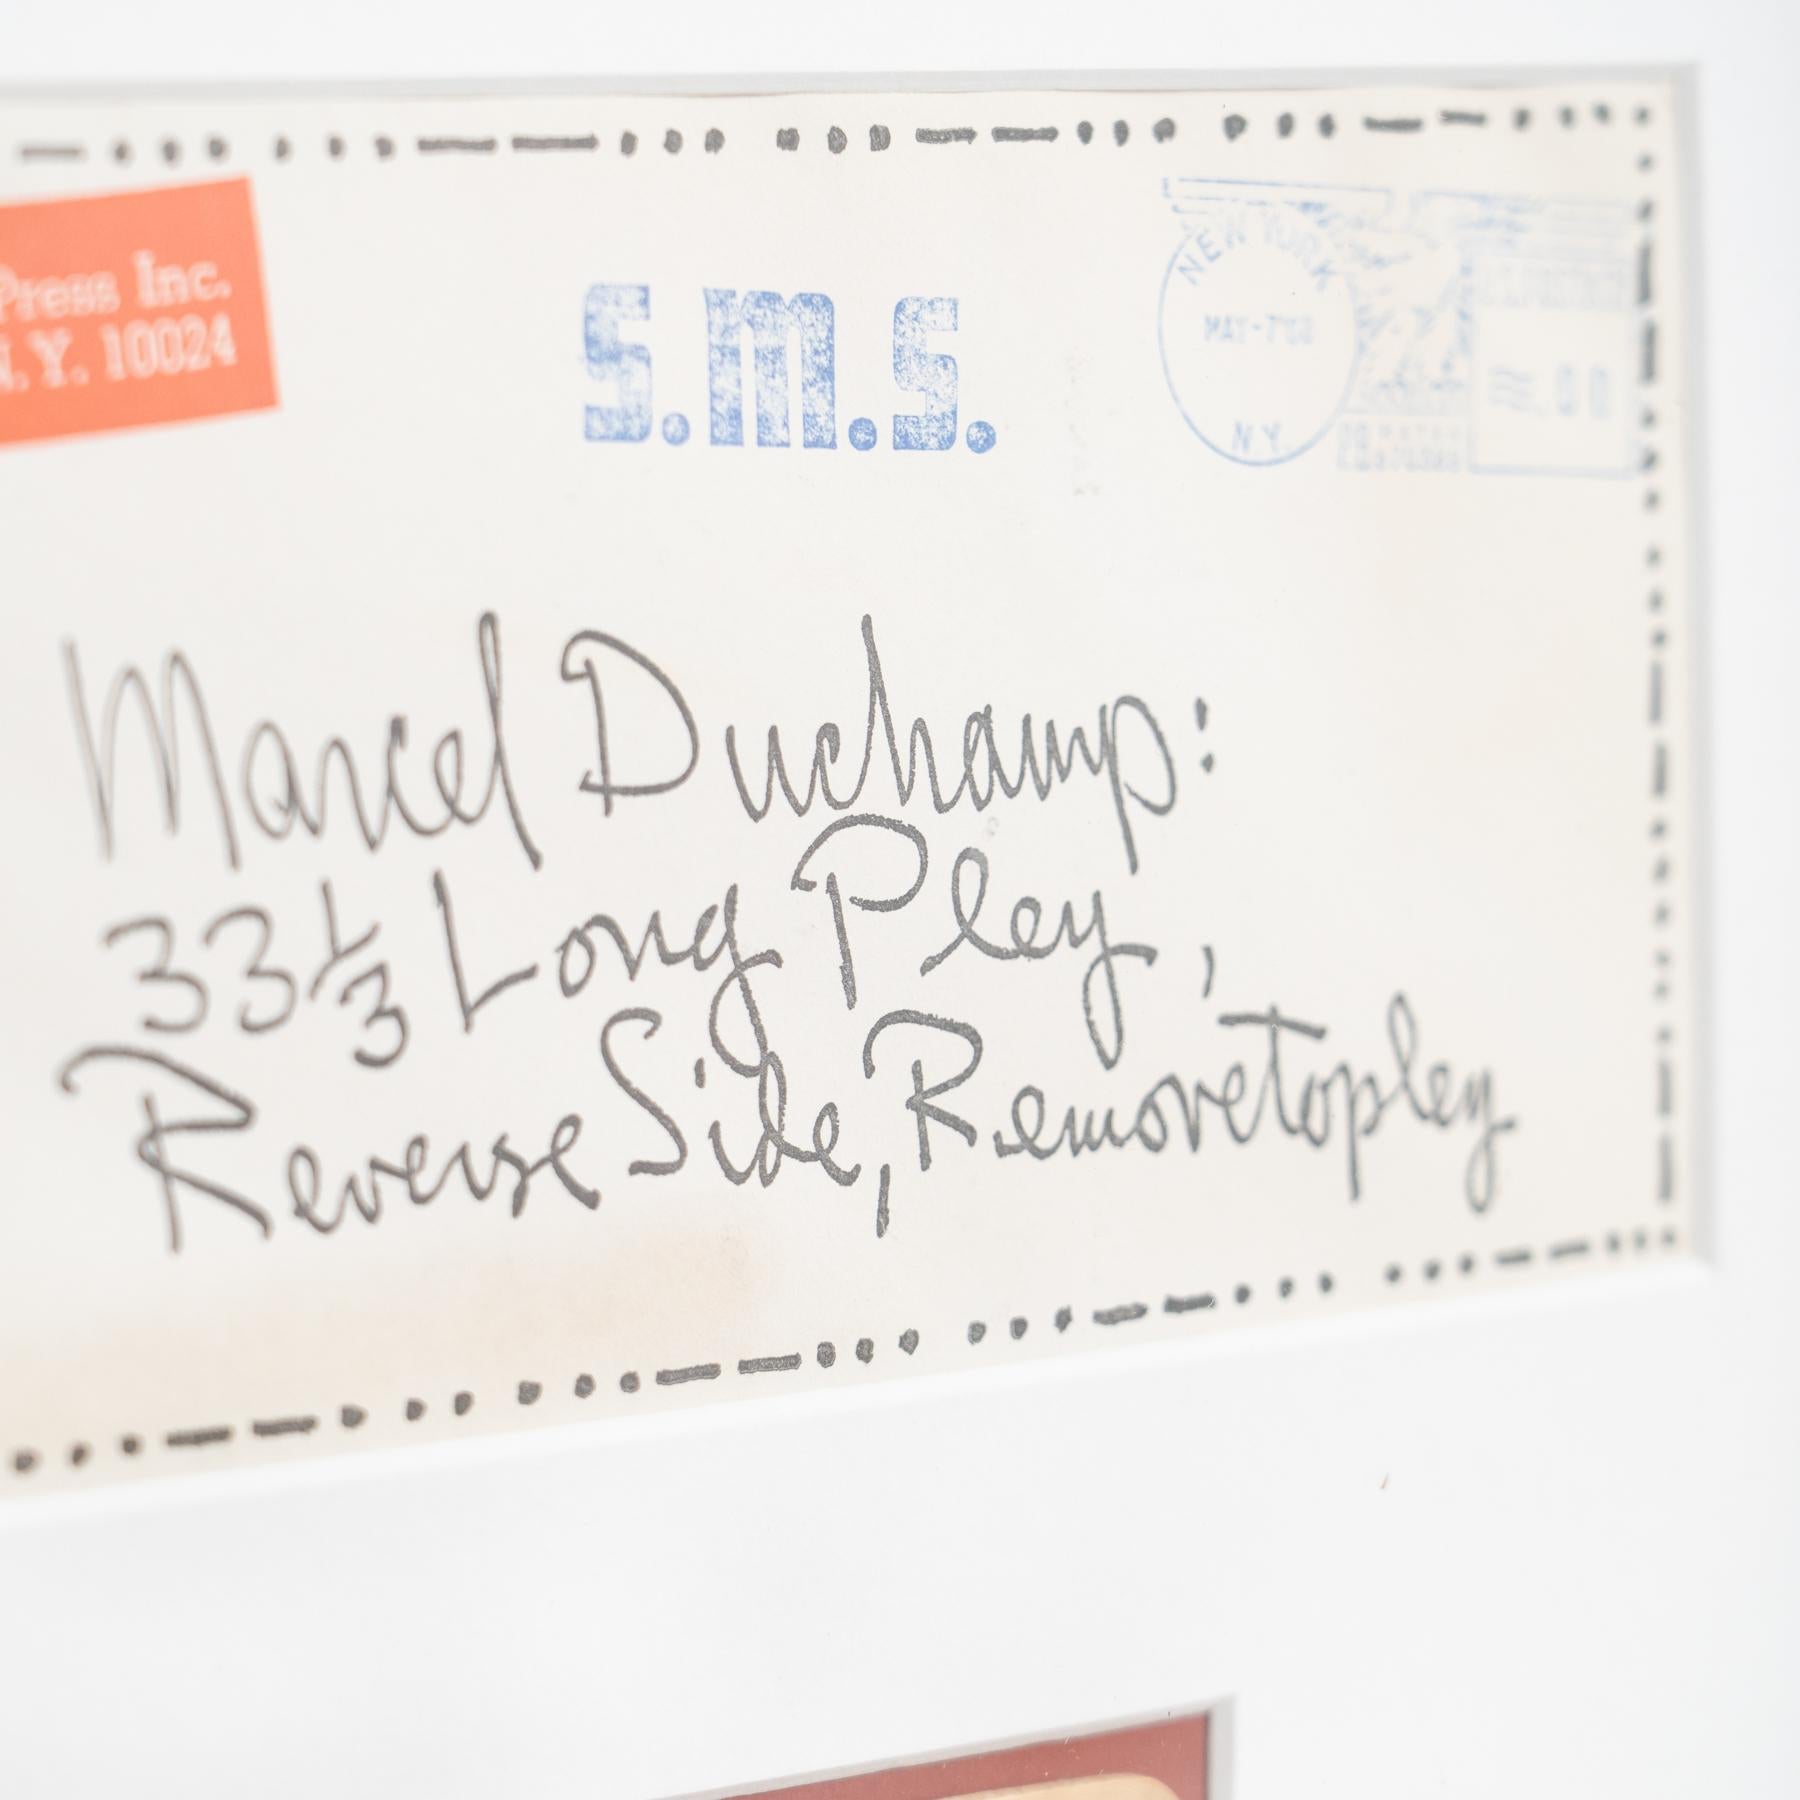 Press Inc.
N.Y. 10024
S.M.S.
NEW YORK
MAY-7'68
N.Y.
.00
Marcel Duchamp:
33 1/3 Long Pley,
Reverse Side, Removetopley